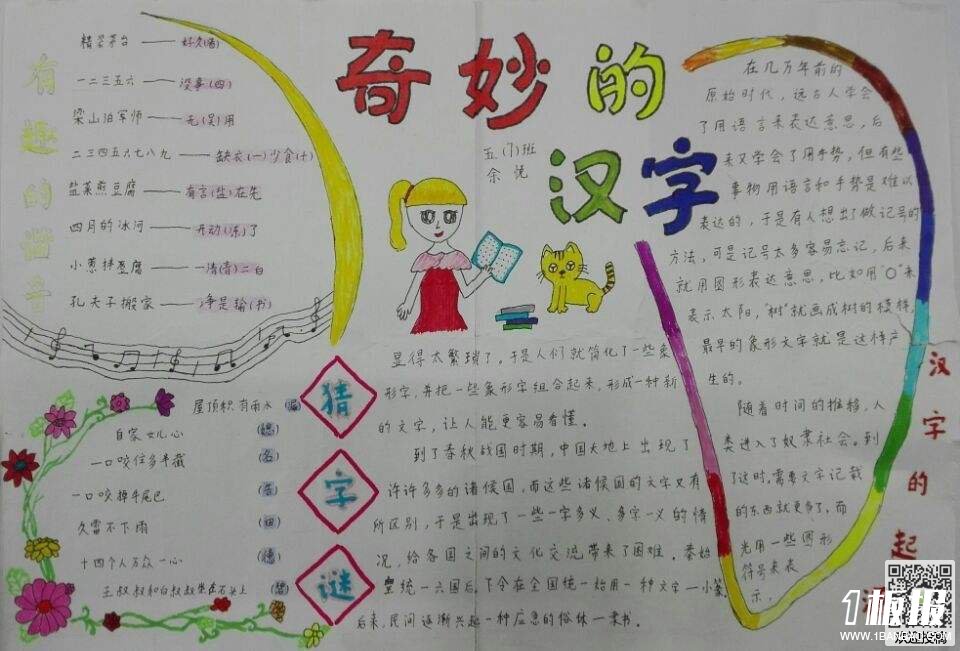 奇妙的
汉字
五(1)班
余悦
有趣的谐音
精装茅台——好久(酒)
一二三五六——没事(四)
梁山泊军师——无(吴)用
二三四五六七八九——缺衣(一)少食(十)
盐菜煎豆腐——有言(盐)在先
四月的冰河——开动(冻)了
小葱拌豆腐——一清(青)二白
孔夫子搬家——净是输(书)
猜字谜
屋顶积有雨水
自家女儿心
一口咬住多半截 (名)
一口咬掉牛尾巴 (告)
久雷不下雨
十四个人万众一心 (德)
王叔叔和白叔叔坐在石头上 (碧)
汉字的起源
在几万年前的
原始时代，远古人学会
了用语言来表达意思，后
来又学会了用手势，但有些
事物用语言和手势是难以
表达的，于是有人想出了做记号的
方法，可是记号太多容易忘记，后来
就用图形表达意思，比如用"〇"来
表示太阳，"树"就画成树的模样，
最早的象形文字就是这样产
生的。
随着时间的推移，人
类进入了奴隶社会。到
了这时，需要文字记载
的东西就更多了，而
光用一些图形
符号来表
示，
显得太繁琐了。于是人们就简化了一些象
形字，并把一些象形字组合起来，形成一种新
的文字，让人能更容易看懂。
到了春秋战国时期，中国大地上出现了
许许多多的诸侯国，而这些诸侯国的文字又有
所区别，于是出现了一些一字多义、多字一义的情
况，给各国之间的文化交流带来了困难。秦始
皇统一六国后，下令在全国统一始用一种文字—小篆
后来，民间逐渐兴起一种应急的俗体—隶书。
1板报
WWW.1BANBAO.COM
欢迎投稿